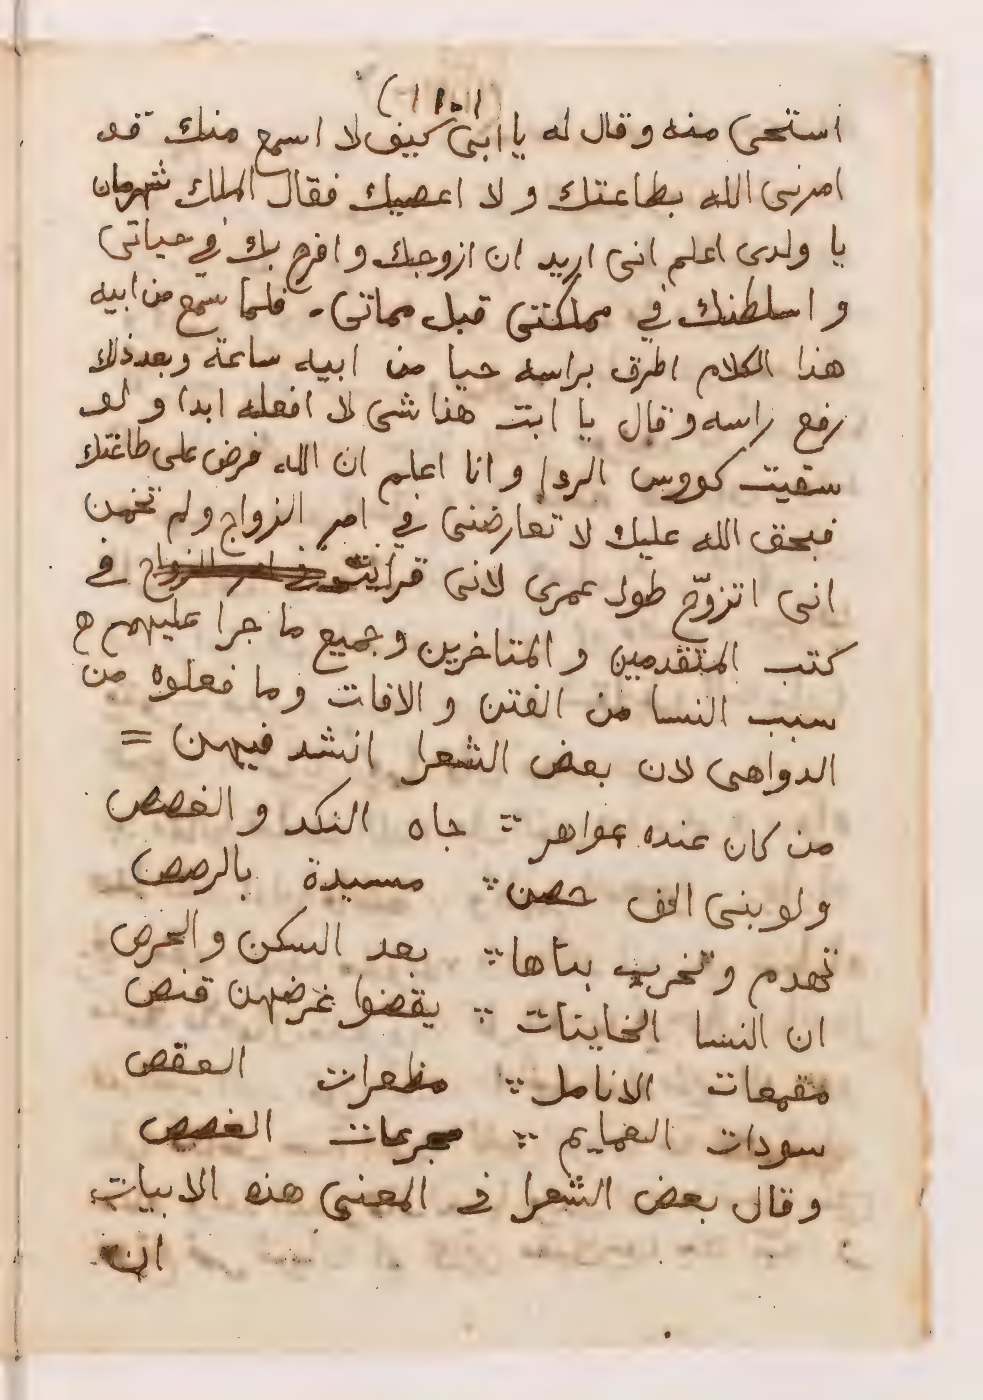 استحى منه وقال له يا ابنى كيف لا اسمع منك قد
امرنى الله بطاعتك و لا اعصيك فقال الملك شهرمان
يا ولدى اعلم انى اريد ان ازوجك و افرح بك في حياتى
و اسلطنك في مملكتى قبل مماتى . فلما سمع من ابيه
هذا الكلام اطرق براسه حيا من ابيه ساعة وبعد ذلك
رفع راسه وقال يا ابت هذا شى لا افعله ابدا و لو
سقيت كووس الردا و انا اعلم ان الله فرض على طاعتك
فبحق الله عليك لا تعارضنى في امر الزواج ولم تخمن
انى اتزوّج طول عمرى لانى قرايت في
كتب المتقدمين و المتاخرين وجميع ما جرا عليهم
سبب النسا من الفتن و الافات وما فعلوه من
الدواهى لان بعض الشعرا انشد فيهن =
من كان عنده عواهر ؞ جاه النكد و الغصص
ولو بنى الف حصن ؞ مسيدة بالرصص
تهدم و تخرب بناها ؞ بعد السكن والحرص
ان النسا الخاينات ؞ يقضوا غرضهن قنص
مقمعات الانامل ؞ مظعرات العقص
سودات العمايم ؞ مجرعات الغصص
وقال بعض الشعرا في المعنى هذه الابيات
ان